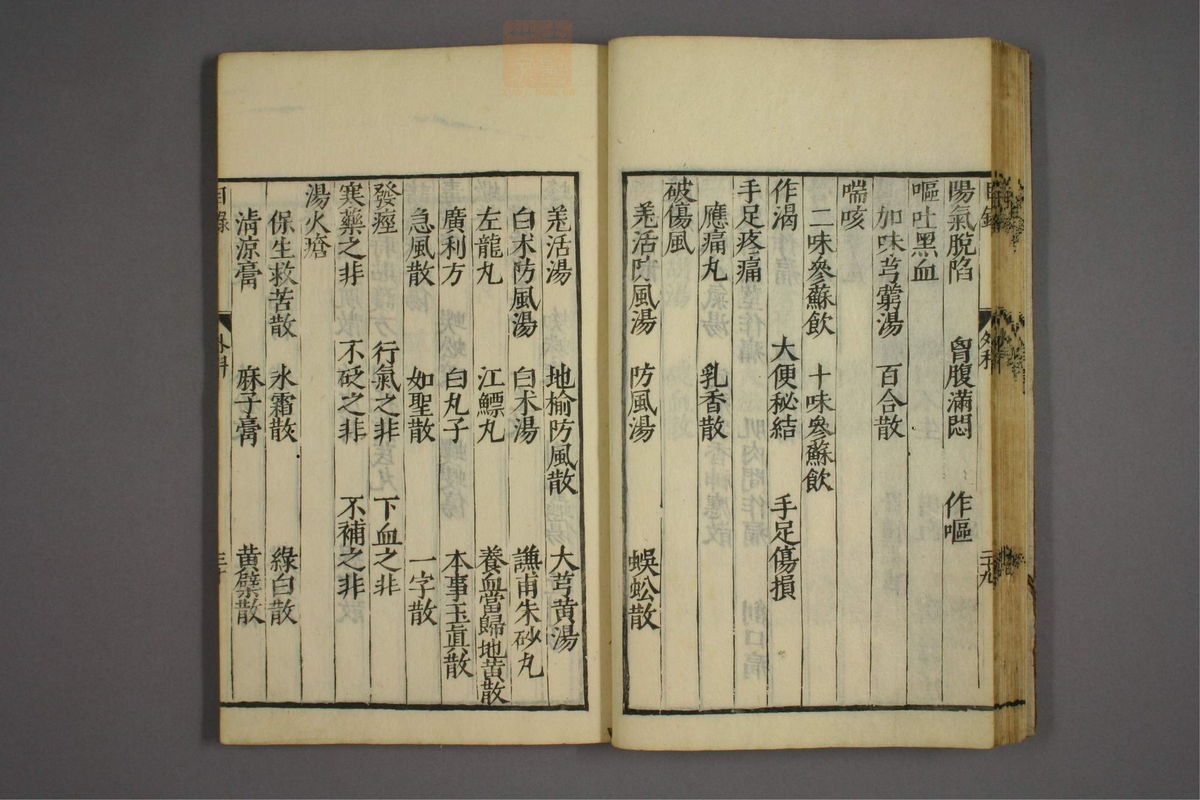 陽氣脫陷 胷腹滿悶 作嘔
嘔吐黑血
加味芎藭湯 百合散
喘咳
二味參蘇飮 十味參蘇飮
作渴 大便秘結 手足傷損
手足疼痛
應痛丸 乳香散
破傷風
羌活防風湯 防風湯 蜈蚣散
目錄 外科 二十九
羌活湯 地榆防風散 大芎黃湯
白术防風湯 白术湯 譙甫朱砂丸
左龍丸 江鰾丸 養血當歸地黃散
廣利方 白丸子 本事玉眞散
急風散 如聖散 一字散
發痙 行氣之非 下血之非
寒藥之非 不砭之非 不補之非
湯火瘡
保生救苦散 氷霜散 綠白散
淸涼膏 麻子膏 黃蘗散
目錄 外科 三十